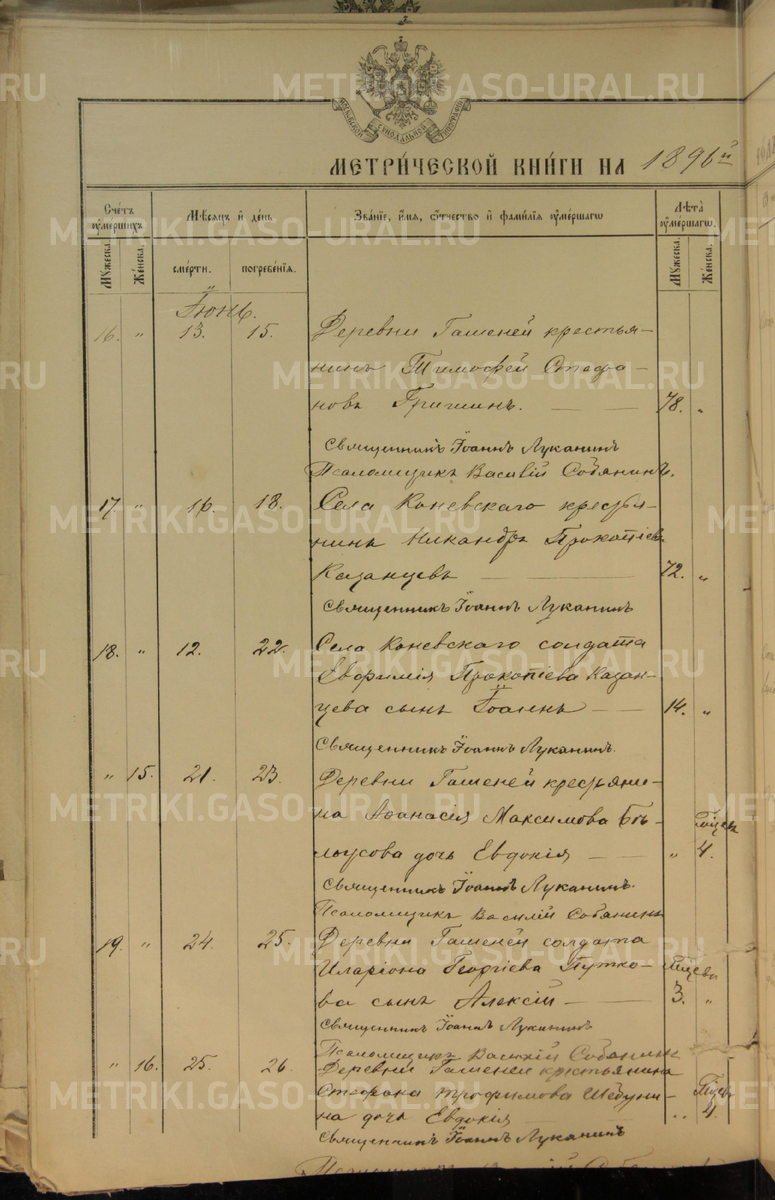 METRIKI.GASO-URAL.RU
МЕТРИ́ЧЕСКОЙ КНИ́ГИ НА 1896й
Сче́тъ ᲂу҆ме́ршихъ
Мѣ́сяцъ и҆ де́нь
Зва́нїе, и҆́мѧ, ѻ҆́тчество и҆ фами́лїѧ ᲂу҆ме́ршагѡ
Лѣ́та ᲂу҆ме́ршагѡ
Мꙋ́жеска.
Же́нска.
сме́рти.
погребе́нїѧ.
Мꙋ́жеска.
Же́нска.
Іюнь.
16. " 13. 15. Деревни Гашеней крестья-
нинъ Тимоѳей Стефа-
новъ Гришинъ. — — 78. "
Священникъ Іоаннъ Луканинъ
Псаломщикъ Василій Собянинъ.
17. " 16. 18. Села Коневскаго крестья
нинъ Никандръ Прокопіевъ
Казанцевъ — 72. "
Священникъ Іоаннъ Луканинъ
18. " 12. 22. Села Коневскаго солдата
Евѳимія Прокопіева Казан-
цева сынъ Іоаннъ — — 14. "
Священникъ Іоаннъ Луканинъ.
" 15. 21. 23. Деревни Гашеней крестьяни-
на Аѳанасія Максимова Бѣ-
лоусова дочь Евдокія — — " 4.
Священникъ Іоаннъ Луканинъ.
Псаломщикъ Василій Собянинъ
19. " 24. 25. Деревни Гашеней солдата
Иларіона Георгіева Путко-
ва сынъ Алексій — 3. "
Священникъ Іоаннъ Луканинъ
Псаломщикъ Василій Собянинъ
" 16. 25. 26. Деревни Гашеней крестьянина
Стефана Трофимова
на дочь Евдокія — " 4.
Священникъ Іоаннъ Луканинъ